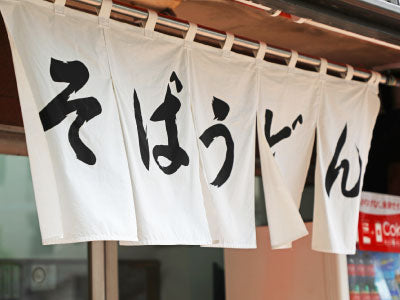 そばうどん
Coke